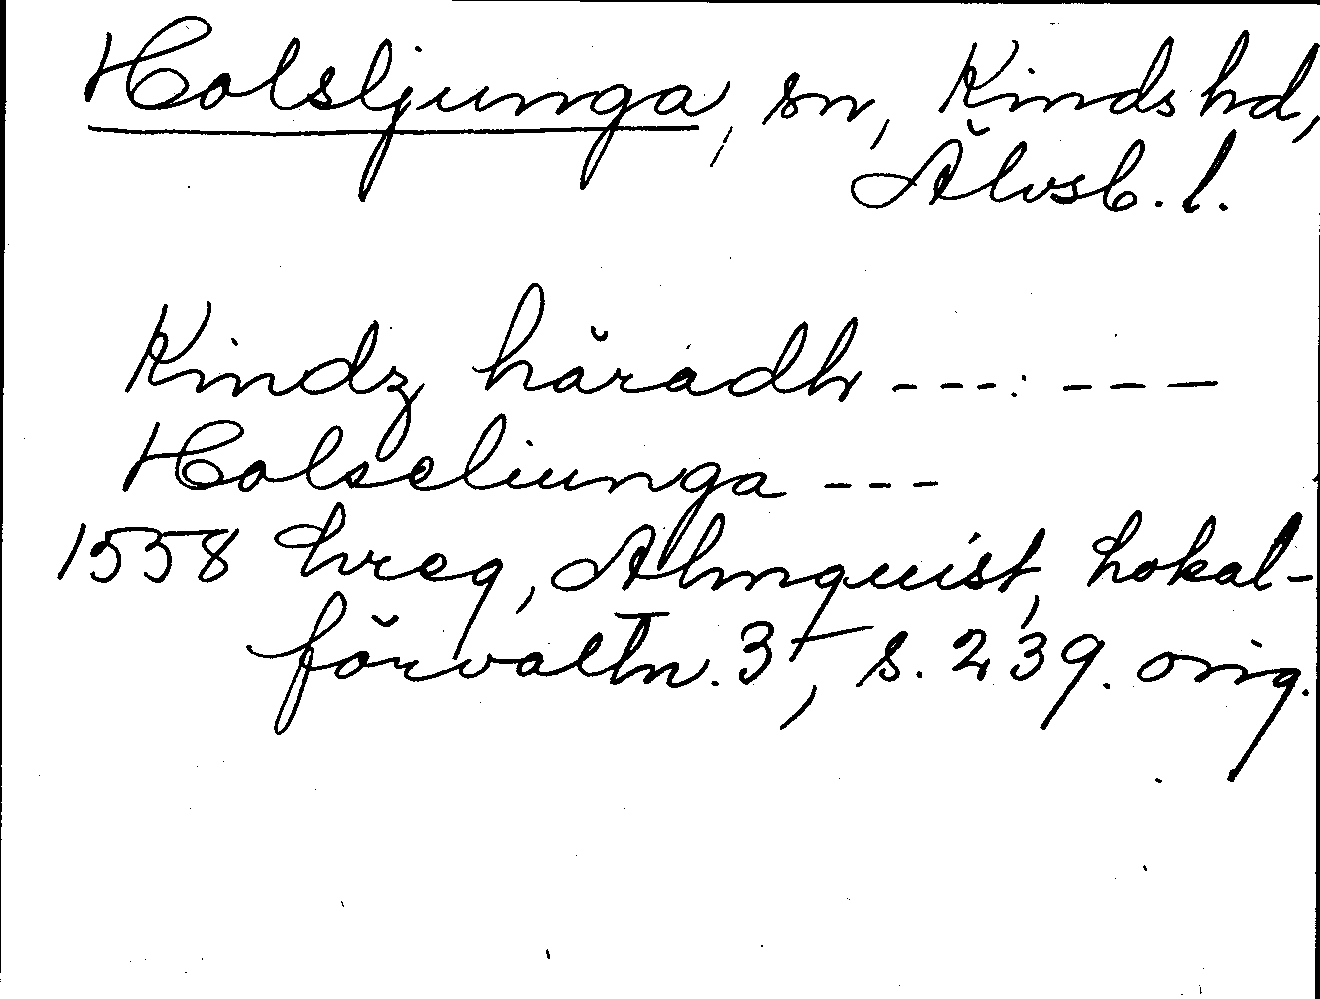 Holsljunga, sn, Kinds hd,
Älvsb. l.
Kindz häradh --- : ---
Holseliunga ---
1558 hreg, Almquist, Lokal-
förvaltn. 3+, s. 239. orig.